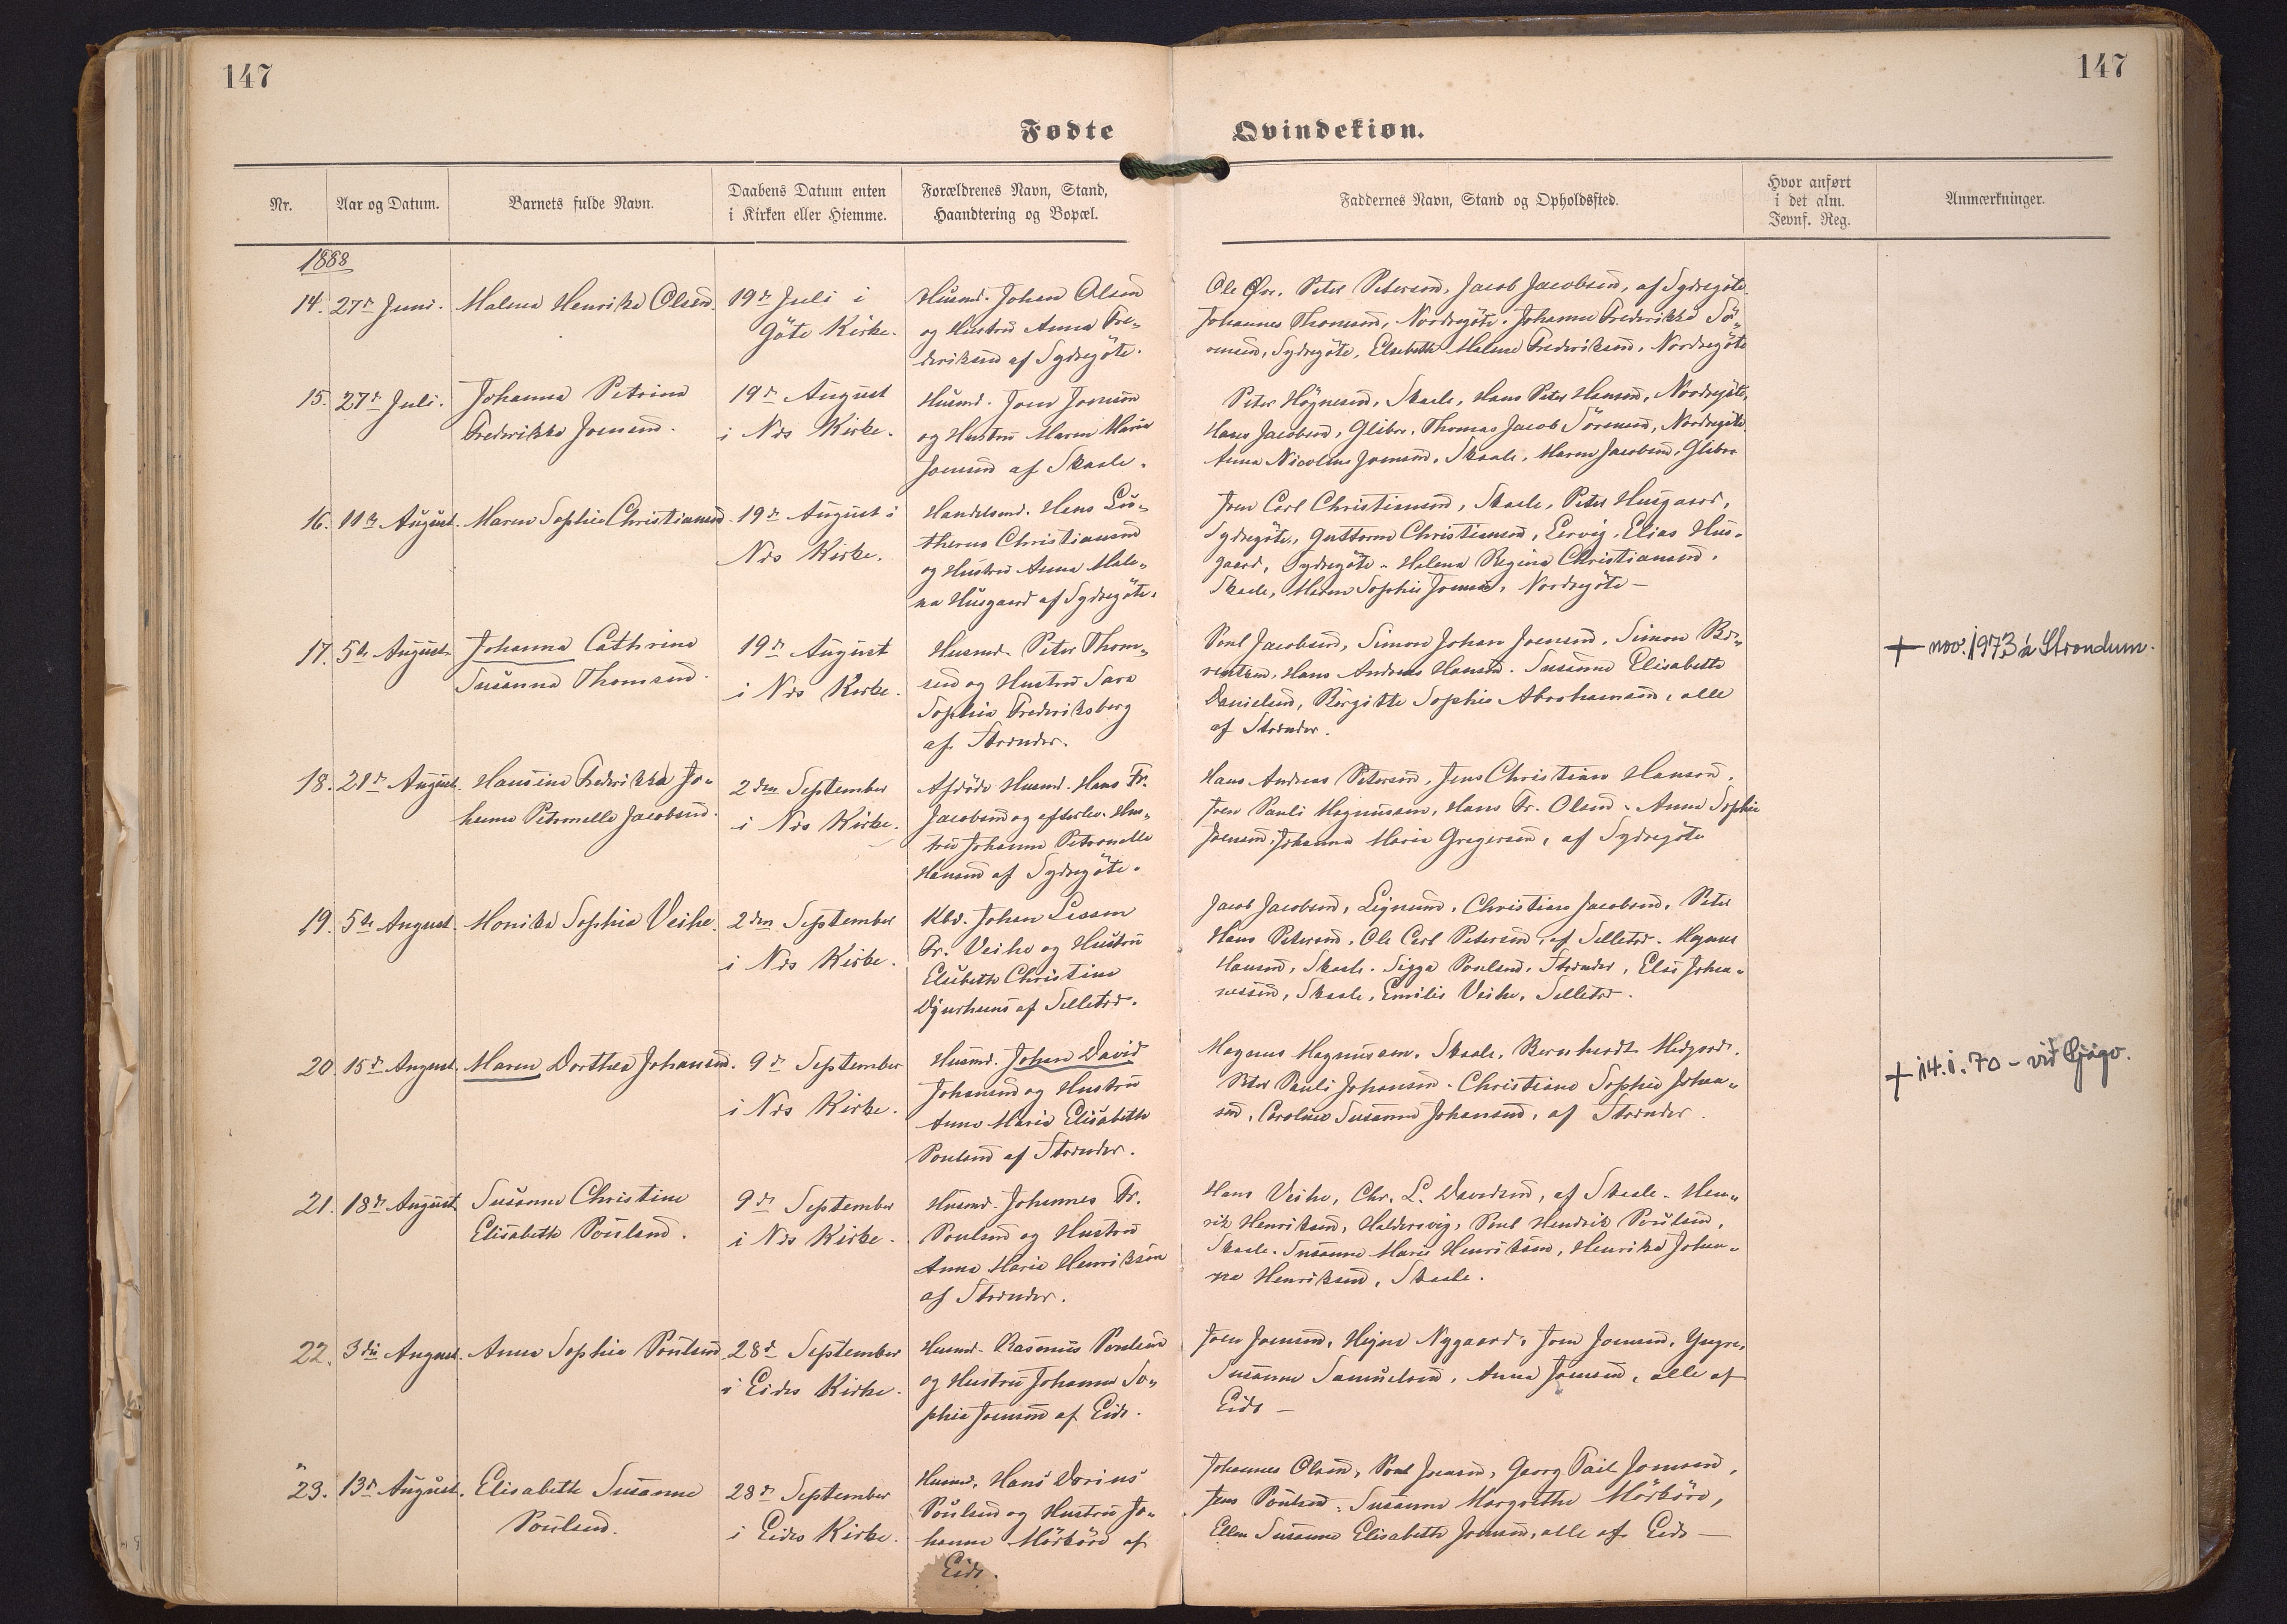 147
147
Fødte
Qvindekiøn.
Nr.
Aar og Datum.
Barnets fulde Navn.
Daabens Datum enten
i Kirken eller Hiemme.
Forældrenes Navn, Stand,
Haandtering og Bopæl.
Faddernes Navn, Stand og Opholdssted.
Hvor anført
i det alm.
Jevnf. Reg.
Anmærkninger.
1888
14. 27de Juni.
Malena Henrikka Olsen.
19de Juli i
Göte Kirke.
Husmd. Johan Olsen
og Hustru Anna Fre-
deriksen af Sydregöte.
Peter Petersen, Jacob Jacobsen, af Sydregöte.
Johannes Thomsen, Nordregöte. Johanne Frederikke Sö-
rensen, Sydregöte, Elsebeth Malene Frederiksen, Nordregöte
15. 27de Juli.
Johanna Petrina
Frederikka Joensen.
19de August
i Nes Kirke.
Husmd. Joen Joensen
og Hustru Maren Maria
Joensen af Skaale.
Peter Högnesen, Skaale, Hans Peter Hansen, Nordregöte,
Hans Jacobsen, Glibre. Thomas Jacob Sörensen, Nordregöte.
Anna Nicoline Joensen, Skaale. Maren Jacobsen, Glibre
16. 11te August.
Maren Sophie Christiansen.
19de August i
Nes Kirke.
Handelsmd. Hans Lu-
therus Christiansen
og Hustru Anna Male-
na Husgaard af Sydregöte.
Joen Carl Christiansen, Skaale, Peter Husgaard,
Sydregöte, Guttorm Christiansen, Lervig. Elias Hus-
gaard, Sydregöte. Helena Regina Christiansen.
Skaale, Maren Sophie Joensen, Nordregöte —
17. 5te August.
Johanna Cathrina
Susanna Thomsen.
19de August
i Nes Kirke.
Husmd. Peter Thom-
sen og Hustru Sara
Sophia Frederiksberg
af Strender.
Poul Jacobsen, Simon Johan Joensen. Simon Be-
rentsen, Hans Andreas Hansen. Susanne Elisabeth
Danielsen, Birgitte Sophie Abrahamsen, alle
af Strender.
+ nov. 1973 á Strondum.
18. 21de August.
Hansine Frederikka Jo-
hanna Petronella Jacobsen.
2den September
i Nes Kirke.
Afdöde Husmd. Hans Fr.
Jacobsen og efterlev. Hus-
tru Johanna Petronella
Hansen af Sydregöte.
Hans Andreas Petersen, Jens Christian Hansen.
Joen Pauli Magnussen, Hans Fr. Olsen. Anna Sophie
Joensen, Johanna Maria Gregersen, af Sydregöte
19. 5te August.
Monika Sophia Veihe.
2den September
i Nes Kirke.
Kbd. Johan
Fr. Veihe og Hustru
Elsebeth Christine
Djurhuus af Selletræ.
Jacob Jacobsen, Christian Jacobsen. Peter
Hans Petersen. Ole Carl Petersen, af Selletræ. Magnus
Hansen, Skaale. Sigga Poulsen, Strender, Elsi Johan-
nessen, Skaale, Emilie Veihe, Selletræ.
20. 15de August.
Maren Dorthea Johansen.
9de September
i Nes Kirke.
Husmd. Johan David
Johansen og Hustru
Anna Maria Elisabeth
Poulsen af Strender.
Magnus Magnussen. Skaale, Bernhardt Midgard.
Peter Pauli Johansen. Christiane Sophie Johan-
sen, Caroline Susanna Johansen, af Strender.
+ 14.i.70 - við Gjógv.
21. 18de August.
Susanna Christine
Elisabeth Poulsen.
9de September
i Nes Kirke.
Husmd. Johannes Fr.
Poulsen og Hustru
Anna Maria Henriksen
af Strender.
Hans Veihe, Chr. L. Davidsen, af Skaale. Hen-
rik Henriksen, Haldersvig, Poul Hendrik Poulsen,
Skaale. Susanna Maria Henriksen, Henrika Johan-
na Henriksen, Skaale.
22. 3die August.
Anna Sophia Poulsen.
28de September
i Eides Kirke.
Husmd. Rasmus Poulsen
og Hustru Johanna So-
phia Joensen af Eide.
Joen Joensen, Högne Nygaard, Joen Joensen,
Susanna Samuelsen, Anna Joensen, alle af
Eide —
23. 13de August.
Elisabeth Susanne
Poulsen.
28de September
i Eides Kirke.
Husmd. Hans Dorius
Poulsen og Hustru Jo-
hanna Mörköre af
Eide.
Johannes Olsen, Poul Joensen, Georg Joensen,
Jens Poulsen. Susanna Margrethe Mörköre,
Ellen Susanne Elisabeth Joensen, alle af Eide —